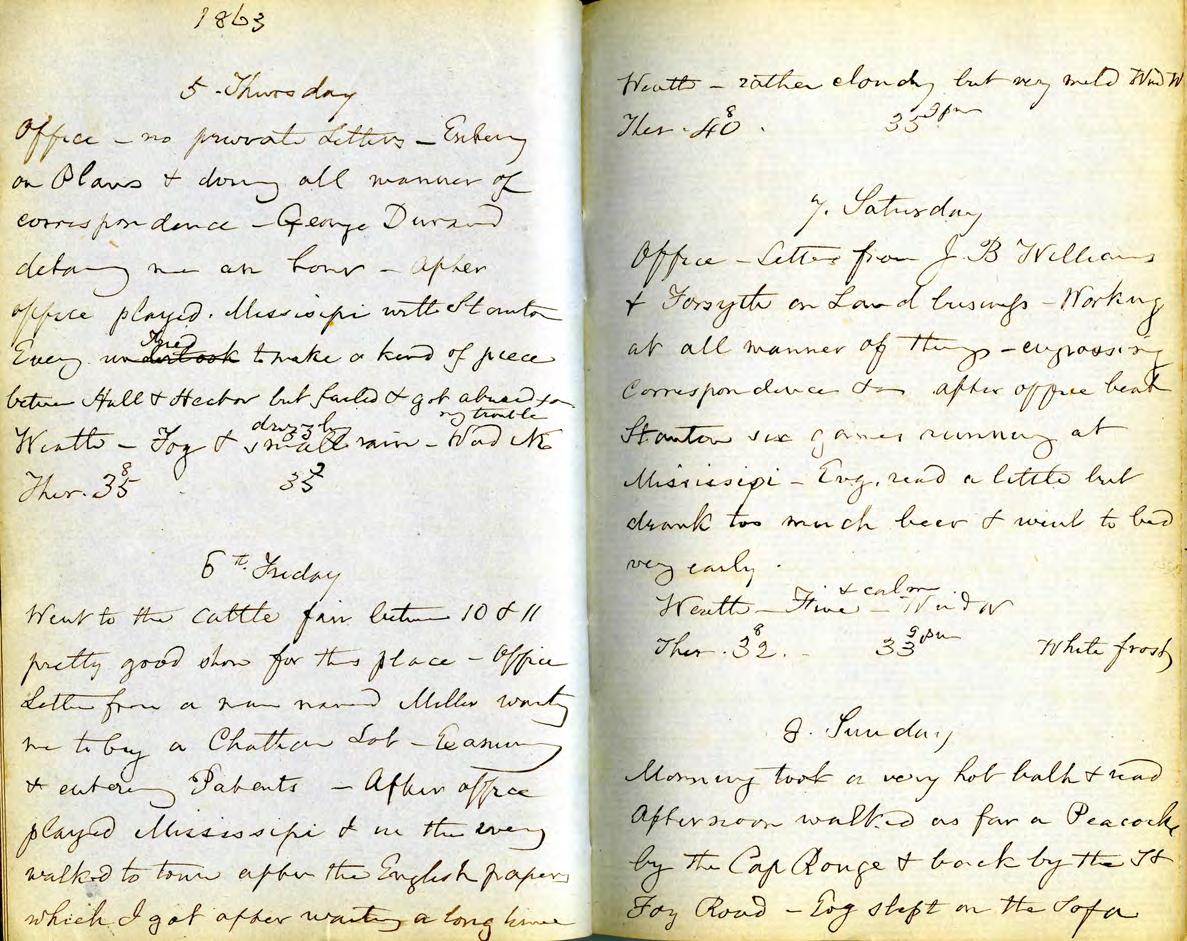 1863
5 - Thursday
Office - no private Letters - Entering
on Plans & doing all manner of
correspondence - George Durand
detaing me an hour - After
office played. Mississipi with Stanton
Eveng. undertook tried to make a kind of peace
between Hall & Hector but failed & got abused for
my trouble
Weath - Fog & small drizzly rain - Wind NE
Ther. 35 8 35 9
6th. Friday
Went to the Cattle fair between 10 & 11
pretty good show for this place - Office
Letter from a man named Miller wanting
me to buy a Chatham Lot - Examing
& entering Patents - After office
played Mississipi & in the eveng
walked to town after the English papers
which I got after waiting a long time
Weath - rather cloudy but very mild Wind W
Ther. 40 8. 35 9 pm
7. Saturday
Office - Letter from J. B Williams
& Forsyth on Land business - Working
at all manner of things - engrossing
Correspondence &c after office beat
Stanton six games running at
Mississipi - Evg. read a little but
drank too much beer & went to bed
very early.
Weath - Fine & calm - Wind W
Ther. 32 8. - 33 9 pm White frost
8. Sunday
Morning took a very hot bath & read
Afternoon walked as far a Peacocks
by the Cap Rouge & back by the St
Foy Road - Evg slept on the Sofa